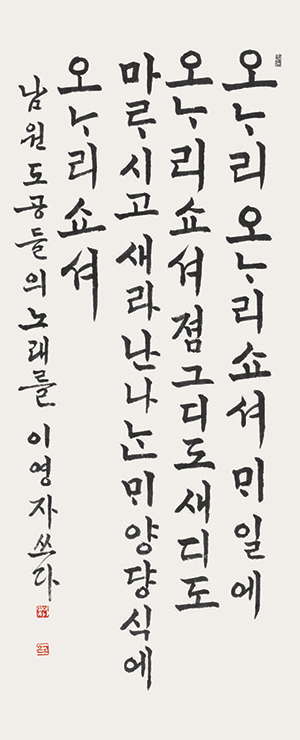 오ᄂᆞ리 오ᄂᆞ리쇼셔 ᄆᆡ일에
오ᄂᆞ리쇼셔 졈그디도 새디도
마ᄅᆞ시고 새라난 나ᄂᆞᆫ ᄆᆡ양 댱식에
오ᄂᆞ리쇼셔
남원 도공들의 노래를 이영자 쓰다